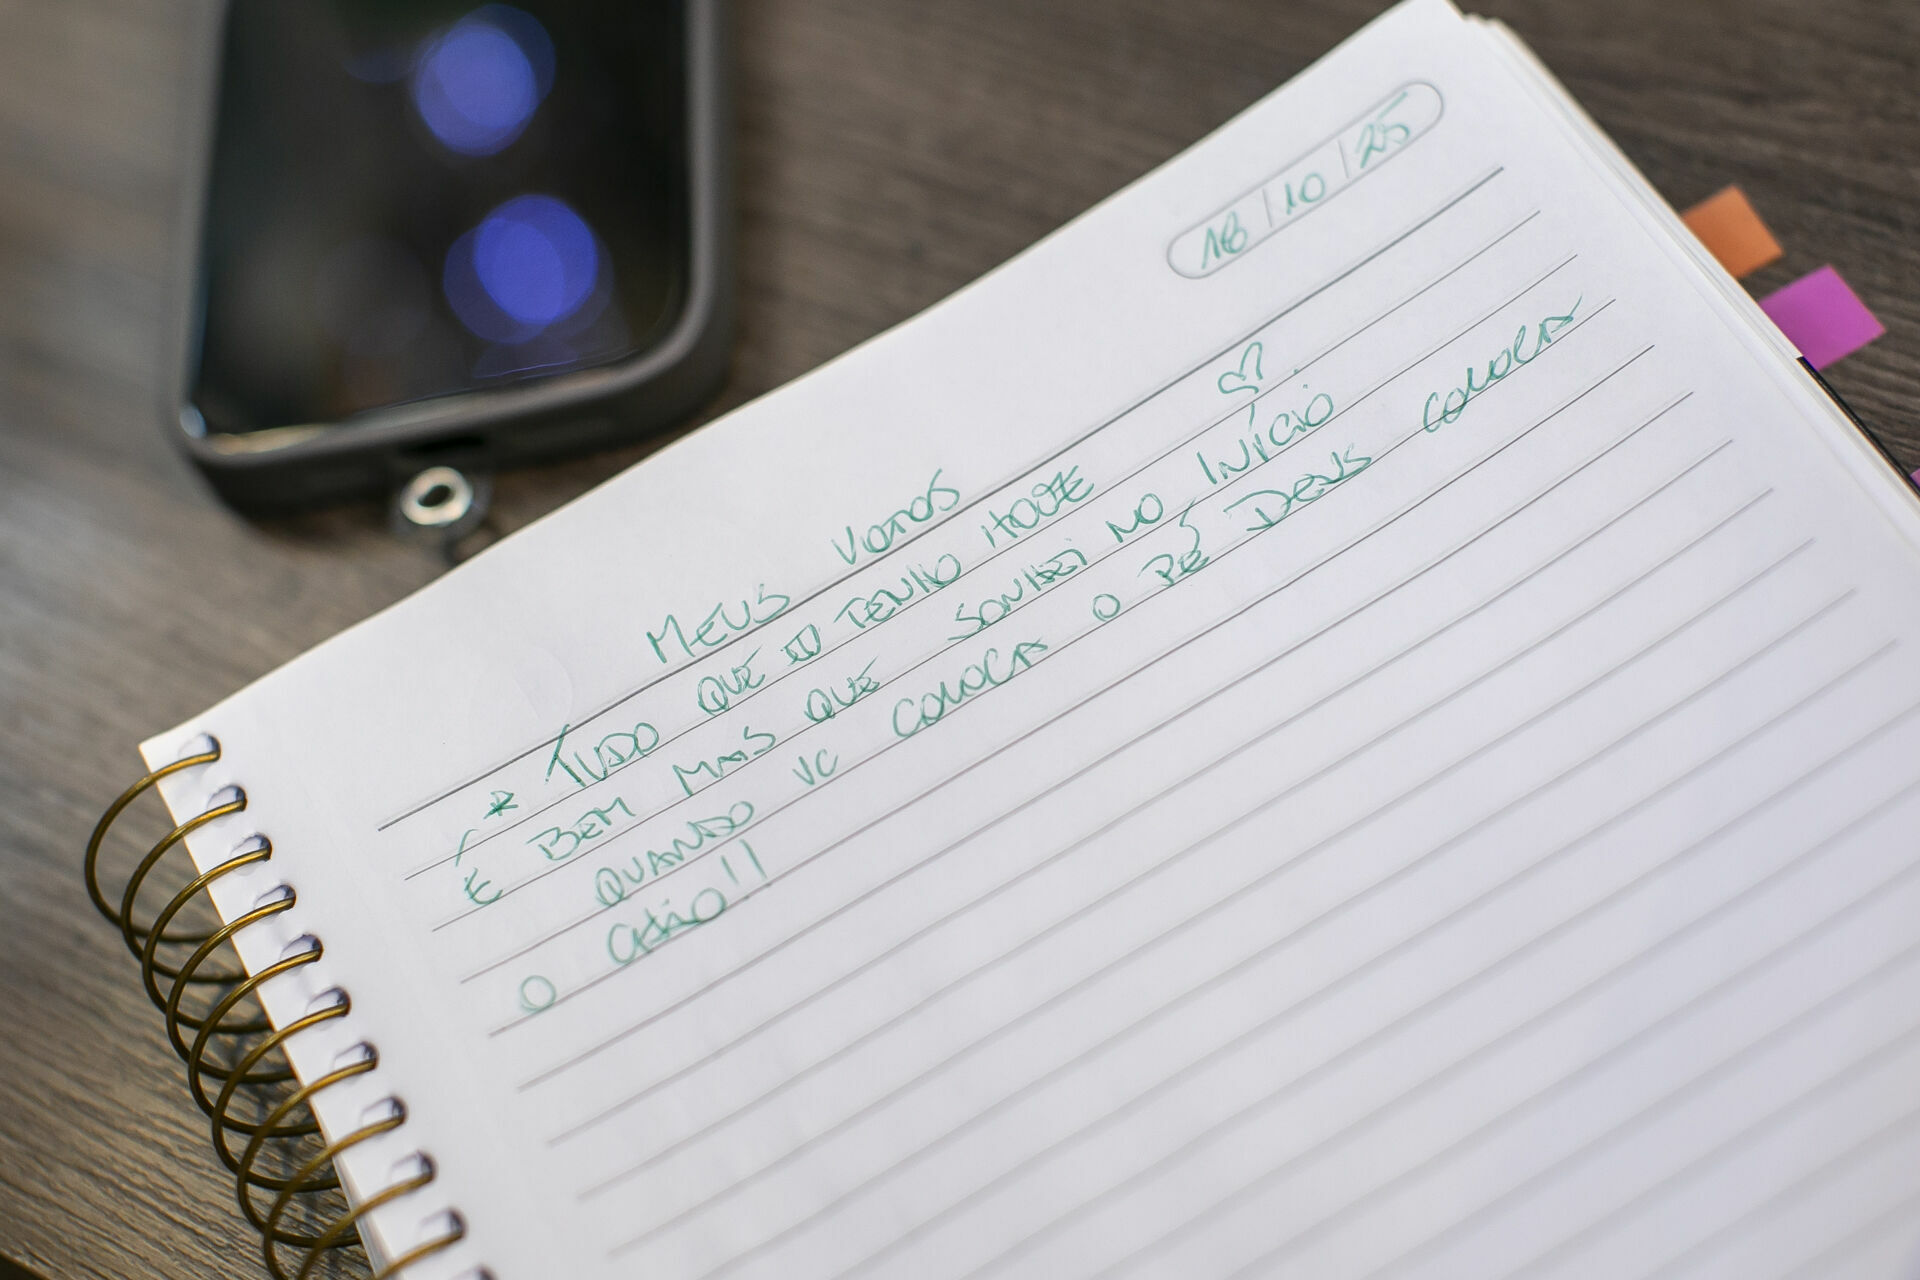 18/10/25
MEUS VOTOS ♡
* TUDO QUE EU TENHO HOJE
É BEM MAIS QUE SONHEI NO INÍCIO.
QUANDO VC COLOCA O PÉ DEUS COLOCA
O CHÃO!!